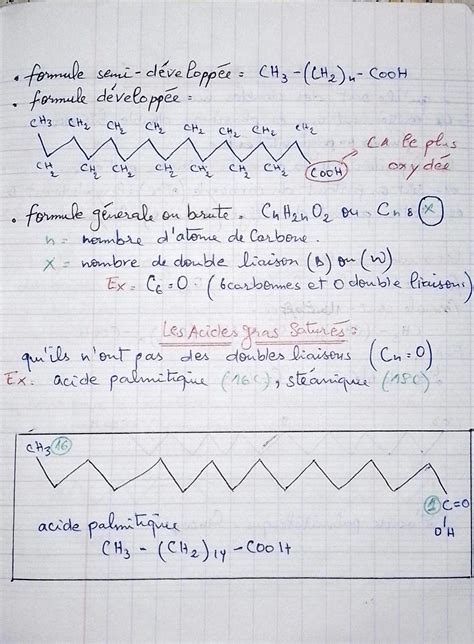 • formule semi-développée = CH3-(CH2)n-COOH
• formule développée =
CH3 CH2 CH2 CH2 CH2 CH2 CH2 CH2
CH2 CH2 CH2 CH2 CH2 CH2 CH2 COOH
CA le plus
oxydée
• formule générale ou brute. CnH2nO2 ou Cn : X
n = nombre d'atome de Carbone.
X = nombre de double liaison (Δ) ou (W)
Ex = C6=0. (6carbonnes et 0 double liaisons)
Les Acides gras Saturés :
qu'ils n'ont pas des doubles liaisons (Cn=0)
Ex. acide palmitique (16C), stéarique (18C)
CH3 16
1 C=O
O H
acide palmitique
CH3 - (CH2)14 - COOH